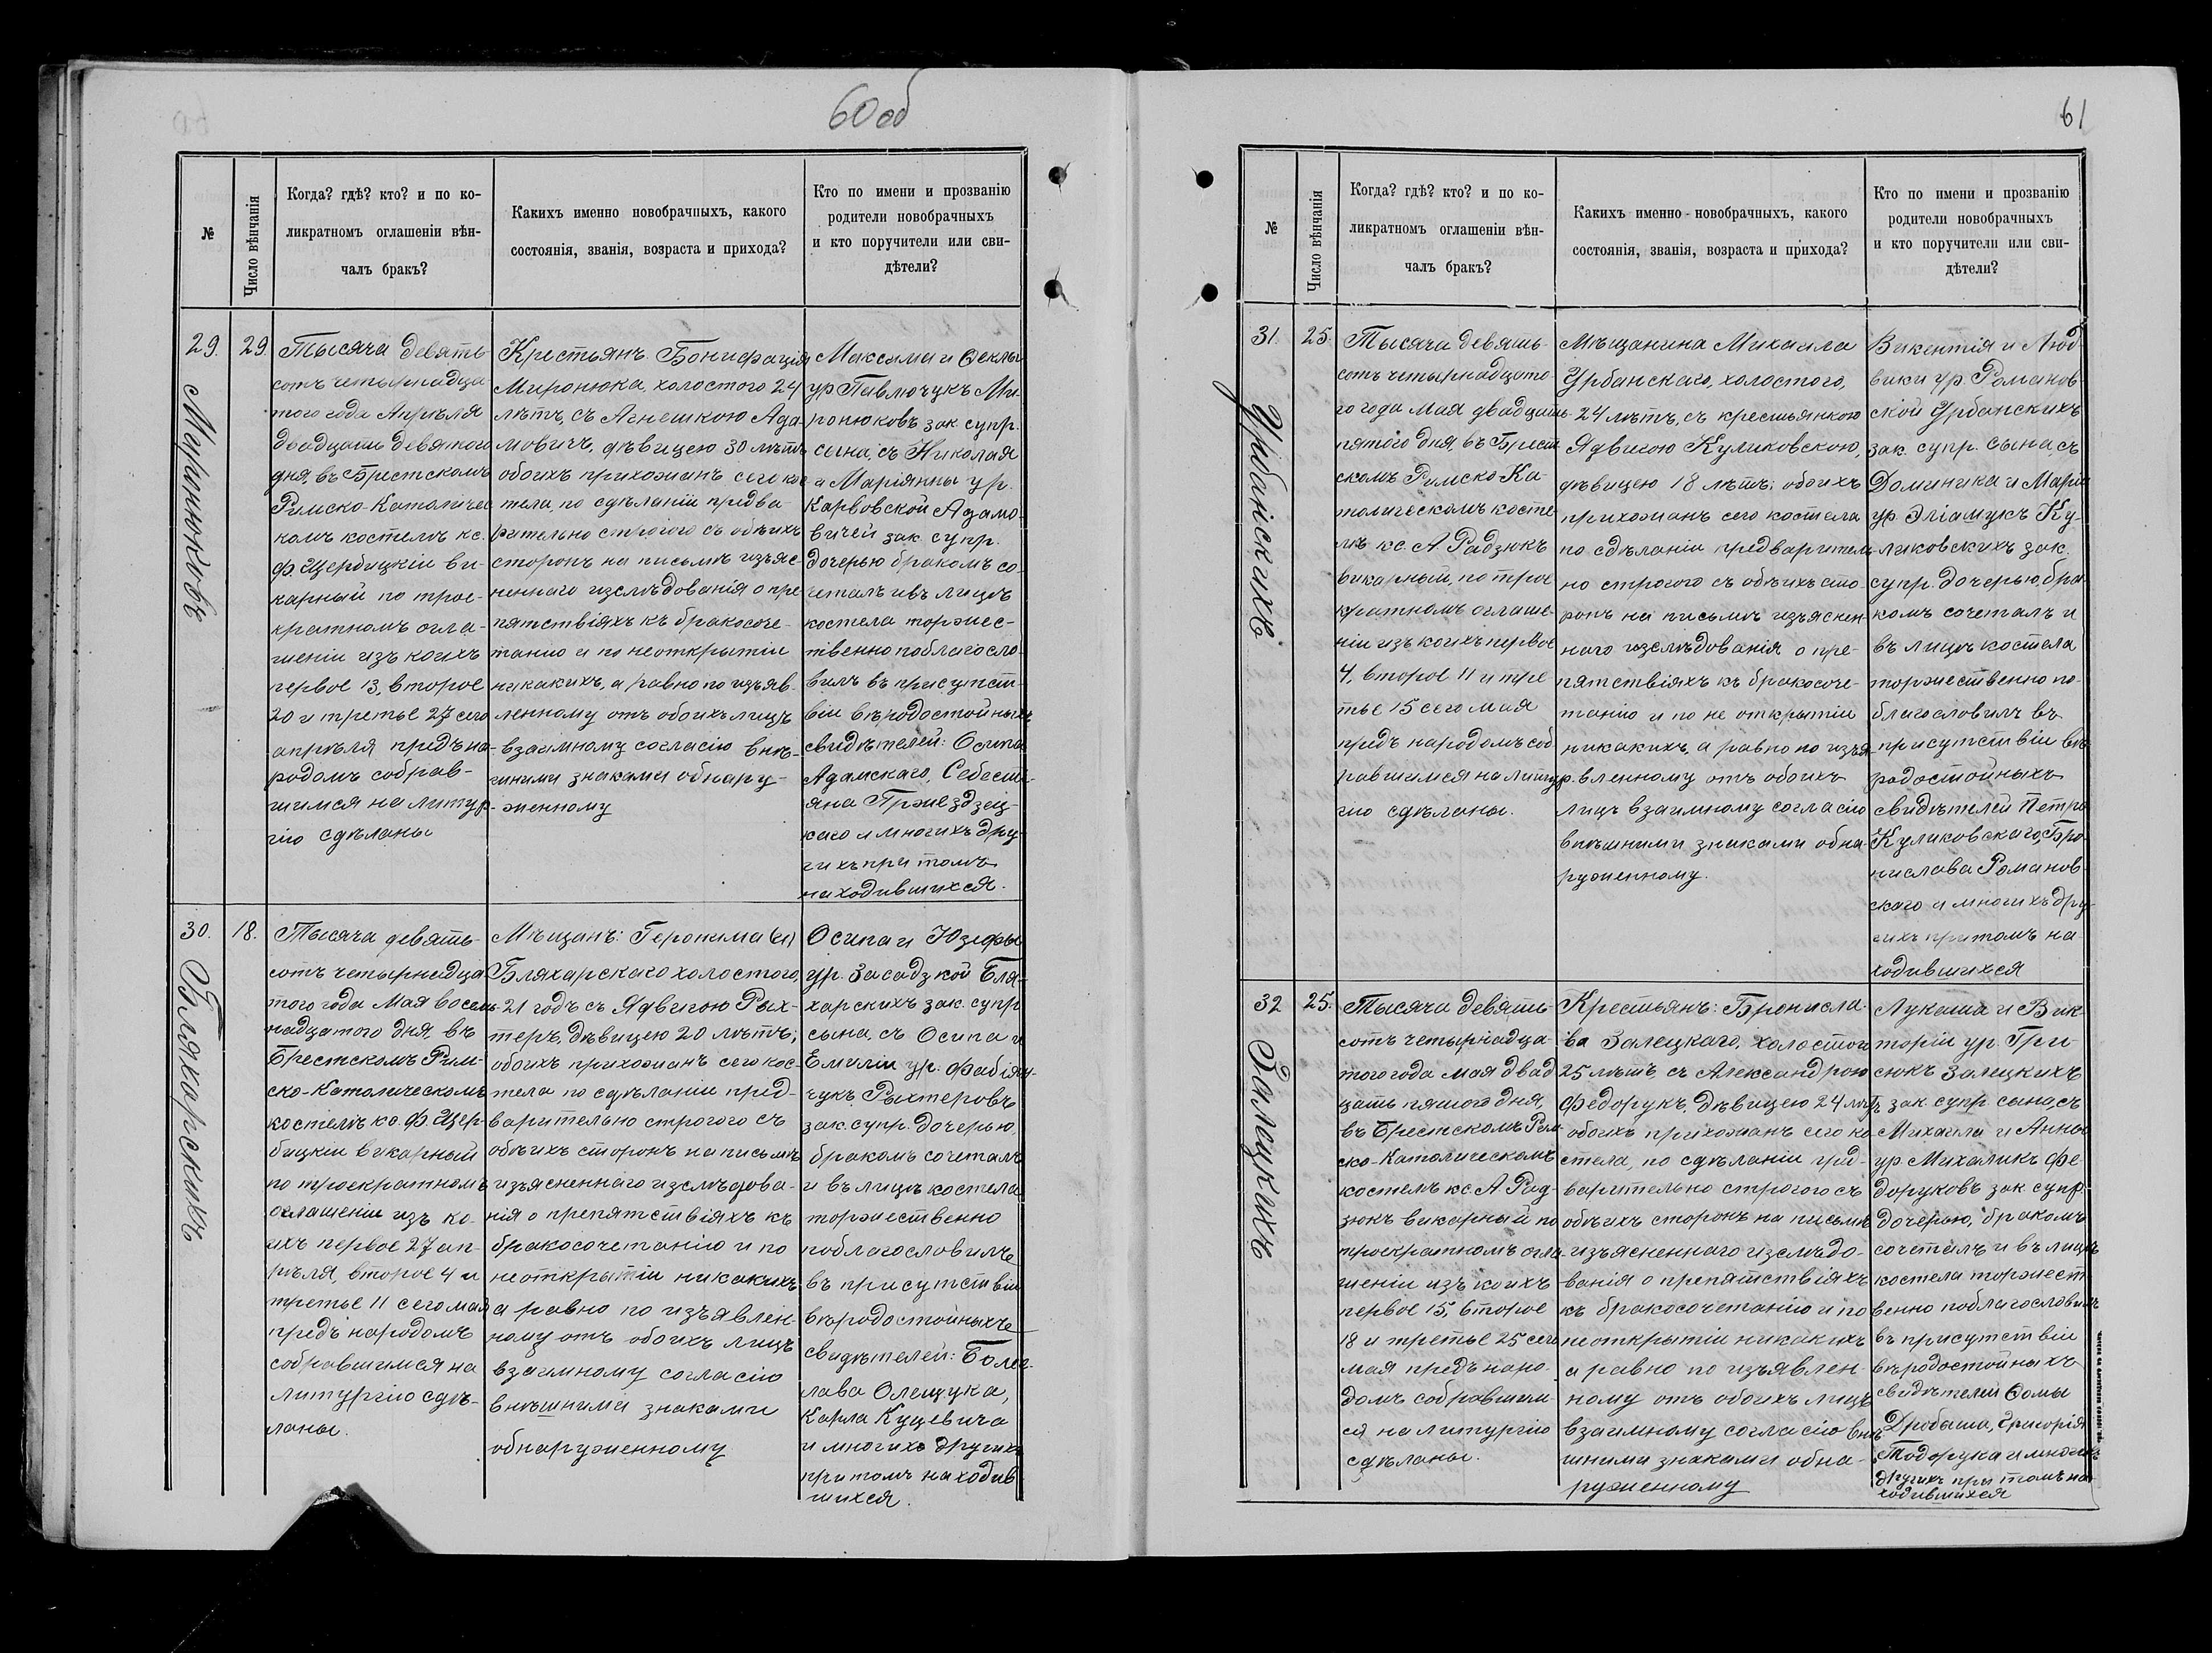 60об
№
Число вѣнчанія
Когда? гдѣ? кто? и по ко-
ликратномъ оглашеніи вѣн-
чалъ бракъ?
Какихъ именно новобрачныхъ, какого
состоянія, званія, возраста и прихода?
Кто по имени и прозванію
родители новобрачныхъ
и кто поручители или сви-
дѣтели?
29.
Миронюковъ
29.
Тысяча девять
сотъ четырнадца
того года Апрѣля
двадцать девятого
дня, въ Брестскомъ
Римско-Католичес
комъ костелѣ кс.
Ф. Щербицкіи ви-
карный по трое-
кратномъ огла-
шеніи изъ коихъ
первое 13, второе
20 и третье 27 сего
апрѣля предъ на-
родомъ собрав-
шимся на литур-
гію сдѣланы
Крестьянъ: Бонифація
Миронюка холостого 24
лѣтъ, съ Агнешкою Ада-
мовичъ, дѣвицею 30 лѣтъ
обоихъ прихожанъ сего кос
тела, по сдѣланіи предва
рительно строгого съ обѣихъ
сторонъ на письмѣ изъяс-
неннаго изслѣдованія о пре
пятствіяхъ къ бракосоче-
танію и по неоткрытіи
никакихъ, а равно по изъяв-
ленному отъ обоихъ лицъ
взаимному согласію внѣ-
шними знаками обнару-
женному
Максима и Феклы
ур Павлючукъ Ми-
ронюковъ зак супр.
сына, съ Николая
и Маріянны ур.
Карвовской Адамо-
вичей зак. супр.
дочерью бракомъ со-
четалъ и въ лицѣ
костела торжес-
твенно поблагосло-
вилъ въ присутст-
віи вѣродостойныхъ
свидѣтелей: Осипа
Адамскаго, Себести-
яна Гржездзец-
каго и многихъ дру-
гихъ при томъ
находившихся.
30.
Бляхарскихъ
18.
Тысяча девять
сотъ четырнадца
того года Мая восем-
надцатого дня, въ
Брестскомъ Рим-
ско-Католическомъ
костелѣ кс. Ф. Щер-
бицкіи викарный
по троекратномъ
оглашеніи изъ ко-
ихъ первое 27 ап-
рѣля, второе 4 и
третье 11 сего мая
предъ народомъ
собравшимся на
литургію сдѣ-
ланы.
Мѣщанъ: Геронима (21)
Бляхарскаго холостого,
21 годъ съ Ядвигою Рых-
теръ, дѣвицею 20 лѣтъ;
обоихъ прихожанъ сего кос-
тела по сдѣланіи пред-
варительно строгого съ
обѣихъ сторонъ на письмѣ
изъясненнаго изслѣдова-
нія о препятствіяхъ къ
бракосочетанію и по
неоткрытіи никакихъ
а равно по изъявлен-
ному отъ обоихъ лицъ
взаимному согласію
внѣшними знаками
обнаруженному
Осипа и Юзефы
ур. Засадзкой Бля-
харскихъ зак. супр
сына, съ Осипа и
Емиліи ур. Фабіян-
чукъ Рыхтеровъ
зак. супр. дочерью,
бракомъ сочеталъ
и въ лицѣ костела
торжественно
поблагословилъ
въ присутствіи
вѣродостойныхъ
свидѣтелей: Болес-
лава Олещука,
Карла Куцевича
и многихъ другихъ
притомъ находив-
шихся.
61
№
Число вѣнчанія
Когда? гдѣ? кто? и по ко-
ликратномъ оглашеніи вѣн-
чалъ бракъ?
Какихъ именно новобрачныхъ, какого
состоянія, званія, возраста и прихода?
Кто по имени и прозванію
родители новобрачныхъ
и кто поручители или сви-
дѣтели?
31.
Урбанскихъ
25.
Тысяча девять-
сотъ четырнадцато-
го года Мая двадцать
пятого дня, въ Брест
скомъ Римско Ка-
толическомъ косте-
лѣ кс. А Радзюкъ
викарный, по трое
кратномъ оглаше-
ніи изъ коихъ первое
4, второе 11 и тре-
тье 15 сего мая
предъ народомъ соб
равшимся на литур-
гію сдѣланы.
Мѣщанина Михаила
Урбанскаго, холостого,
24 лѣтъ, съ крестьянкою
Ядвигою Куликовскою,
дѣвицею 18 лѣтъ; обоихъ
прихожанъ сего костела
по сдѣланіи предварител-
но строгого съ обѣихъ сто
ронъ на письмѣ изъяснен-
наго изслѣдованія о пре-
пятствіяхъ къ бракосоче-
танію и по не открытіи
никакихъ, а равно по изъя
вленному отъ обоихъ
лицъ взаимному согласію
внѣшними знаками обна-
руженному.
Викентія и Люд
вики ур. Романов-
ской Урбанскихъ
зак. супр. сына, съ
Доминика и Маріи
ур. Эліашукъ Ку-
ликовскихъ зак.
супр. дочерью, бра-
комъ сочеталъ и
въ лицѣ костела
торжественно по-
благословилъ въ
присутствіи вѣ-
родостойныхъ
свидѣтелей Петра
Куликовскаго, Бро-
нислава Романов-
скаго и многихъ дру-
гихъ притомъ на-
ходившихся
32
Залецкихъ
25.
Тысяча девять-
сотъ четырнадца-
того года мая двад
цать пятого дня,
въ Брестскомъ Рим-
ско-Католическомъ
костелѣ кс А. Рад-
зюкъ викарный по
троекратномъ огла-
шеніи изъ коихъ
первое 15, второе
18 и третье 25 сего
мая предъ наро-
домъ собравшим
ся на литургію
сдѣланы.
Крестьянъ: Бронисла-
ва Залецкаго, холостого
25 лѣтъ съ Александрою
Федорукъ, дѣвицею 24 лѣтъ
обоихъ прихожанъ сего ко-
стела, по сдѣланіи пред-
варительно строгого съ
обѣихъ сторонъ на письмѣ
изъясненнаго изслѣдо-
ванія о препятствіяхъ
къ бракосочетанію и по
неоткрытіи никакихъ
а равно по изъявлен-
ному отъ обоихъ лицъ
взаимному согласію внѣ-
шними знаками обна-
руженному
Лукаша и Вик-
торіи ур. Гри-
сюкъ Залецкихъ
зак. супр. сына, съ
Михаила и Анны
ур. Михаликъ Фе-
доруковъ зак. супр.
дочерью, бракомъ
сочеталъ и въ лицѣ
костела торжест-
венно поблагословилъ
въ присутствіи
вѣродостойныхъ
свидѣтелей Ѳомы
Дробыша, Григорія
Тодорука и многихъ
другихъ при томъ на-
ходившихся